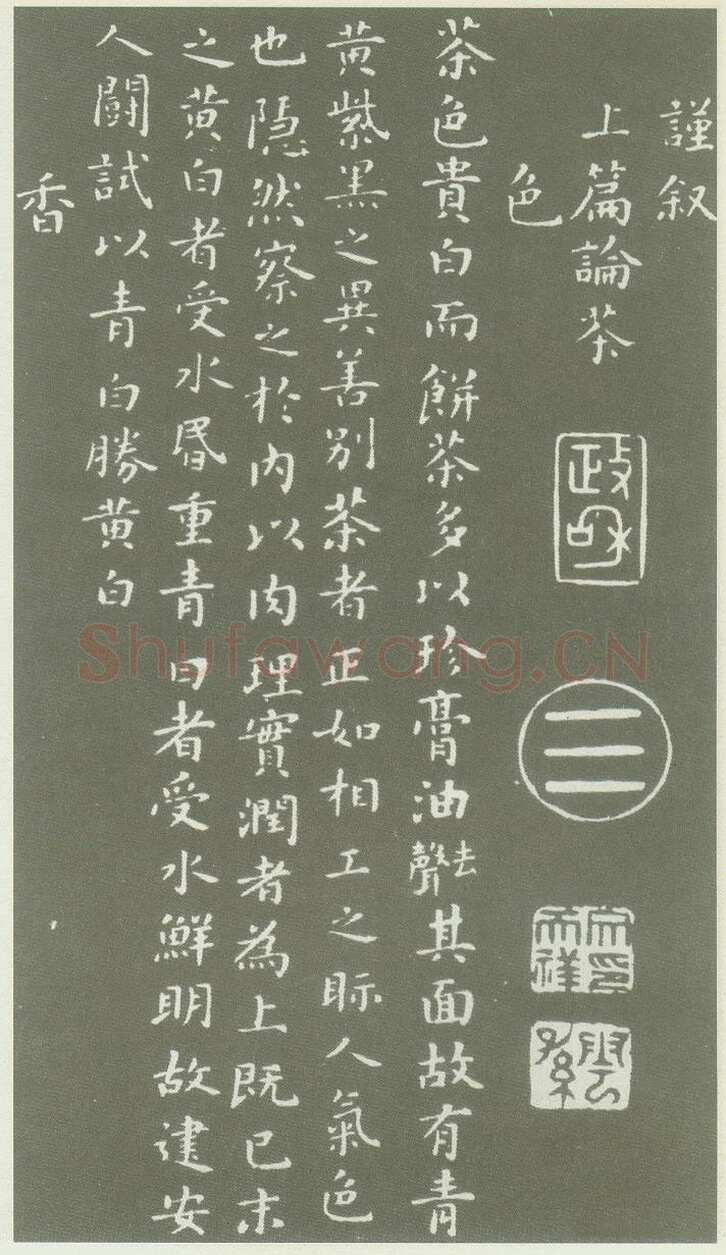 謹叙
上篇論茶
色
茶色貴白而餅茶多以珍膏油去聲其面故有青
黄紫黒之異善别茶者正如相工之眎人氣色
也隠然察之於内以肉理實潤者為上既已末
之黄白者受水昬重青白者受水鮮明故建安
人鬭試以青白勝黄白
香
政和
Shufawang.CN